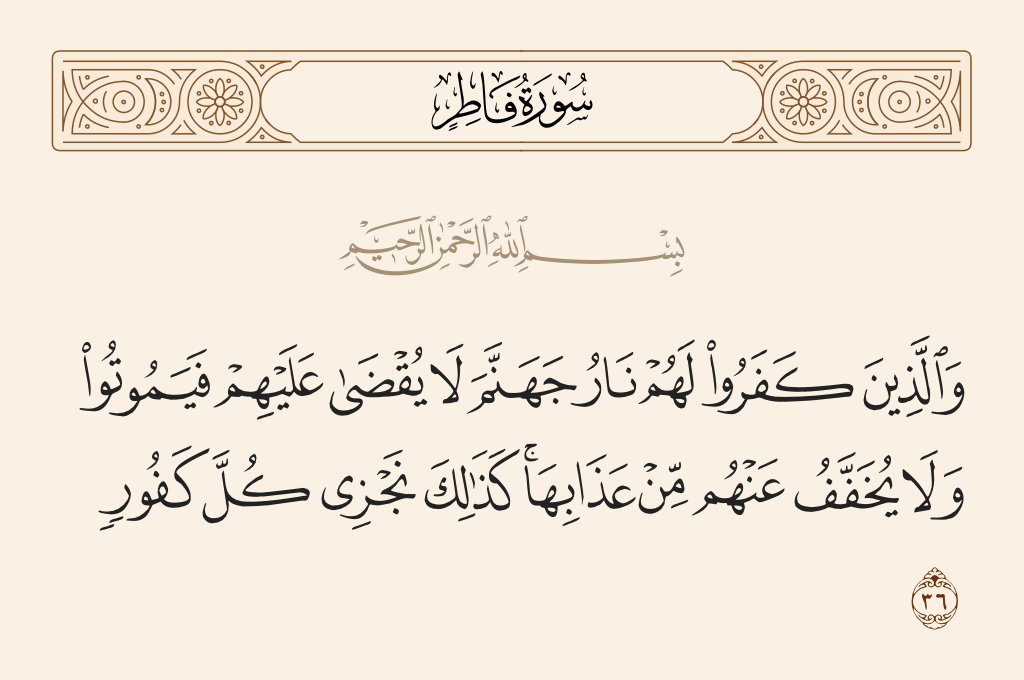 سُورَةُ فَاطِرٍ
بِسْمِ ٱللَّهِ ٱلرَّحْمَٰنِ ٱلرَّحِيمِ
وَٱلَّذِينَ كَفَرُوا۟ لَهُمْ نَارُ جَهَنَّمَ لَا يُقْضَىٰ عَلَيْهِمْ فَيَمُوتُوا۟
وَلَا يُخَفَّفُ عَنْهُم مِّنْ عَذَابِهَا ۚ كَذَٰلِكَ نَجْزِى كُلَّ كَفُورٍ
٣٦